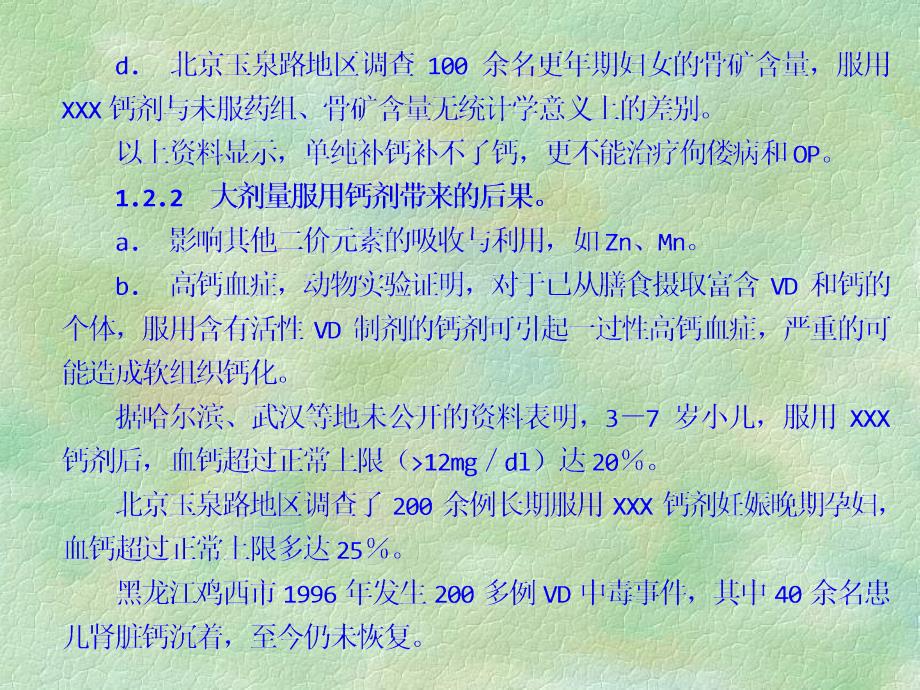 d. 北京玉泉路地区调查 100 余名更年期妇女的骨矿含量，服用
XXX 钙剂与未服药组、骨矿含量无统计学意义上的差别。
以上资料显示，单纯补钙补不了钙，更不能治疗佝偻病和OP。
1.2.2 大剂量服用钙剂带来的后果。
a. 影响其他二价元素的吸收与利用，如 Zn、Mn。
b. 高钙血症，动物实验证明，对于已从膳食摄取富含 VD 和钙的
个体，服用含有活性 VD 制剂的钙剂可引起一过性高钙血症，严重的可
能造成软组织钙化。
据哈尔滨、武汉等地未公开的资料表明，3－7 岁小儿，服用 XXX
钙剂后，血钙超过正常上限（>12mg／dl）达 20％。
北京玉泉路地区调查了 200 余例长期服用 XXX 钙剂妊娠晚期孕妇，
血钙超过正常上限多达 25％。
黑龙江鸡西市 1996 年发生 200 多例 VD 中毒事件，其中 40 余名患
儿肾脏钙沉着，至今仍未恢复。